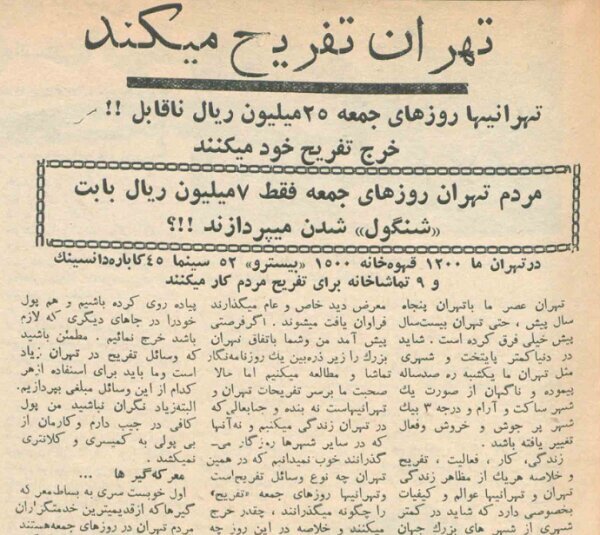 تهران تفریح میکند
تهرانیها روزهای جمعه ۲۵میلیون ریال ناقابل !!
خرج تفریح خود میکنند
مردم تهران روزهای جمعه فقط ۷میلیون ریال بابت
«شنگول» شدن میپردازند !!؟
درتهران ما ۱۲۰۰ قهوه‌خانه ۱۵۰۰ «بیسترو» ۵۲ سینما ۴۵کاباره‌دانسینك
و ۹ تماشاخانه برای تفریح مردم کار میکنند
تهران عصر ما باتهران پنجاه
سال پیش ، حتی تهران بیست‌سال
پیش خیلی فرق کرده است . شاید
در دنیاکمتر پایتخت و شهری
مثل تهران ما یکشبه ره صدساله
پیموده و ناگهان از صورت یك
شهر ساکت و آرام و درجه ۳ بیك
شهر پر جوش و خروش وفعال
تغییر یافته باشد .
زندگی، کار ، فعالیت ، تفریح
و خلاصه هریك از مظاهر زندگی
تهران و تهرانیها عوالم و کیفیات
بخصوصی دارد که شاید در کمتر
شهری از شهر های بزرگ جهان
معرض دید خاص و عام میگذارند
فراوان یافت میشوند . اگرفرصتی
پیش آمد من وشما باتفاق تهران
بزرك را زیر ذره‌بین یك روزنامه‌نگار
تماشا و مطالعه میکنیم اما حالا
صحبت ما برسر تفریحات تهران و
تهرانیهاست نه بنده و جنابعالی‌که
در تهران زندگی میکنیم و نه‌آنها
که در سایر شهرها روزگار می‌ـ
گذرانند خوب نمیدانیم که در همین
تهران چه نوع وسائل تفریح‌است
وتهرانیها روزهای جمعه «تفریح»
را چگونه میگذرانند ، چقدر خرج
میکنند و خلاصه در این روز چه
پیاده روی کرده باشیم و هم پول
خودرا در جاهای دیگری که لازم
باشد خرج نمائیم . مطمئن باشید
که وسائل تفریح در تهران زیاد
است وما باید برای استفاده ازهر
کدام از این وسائل مبلغی بپردازیم.
البته‌زیاد نگران نباشید من پول
کافی در جیب دارم وکارمان از
بی پولی به کمیسری و کلانتری
نمیکشد .
معرکه‌گیر ها ...
اول خوبست سری به بساط‌معرکه
گیرها که ازقدیمیترین خدمتگزاران
مردم تهران در روزهای جمعه‌هستند